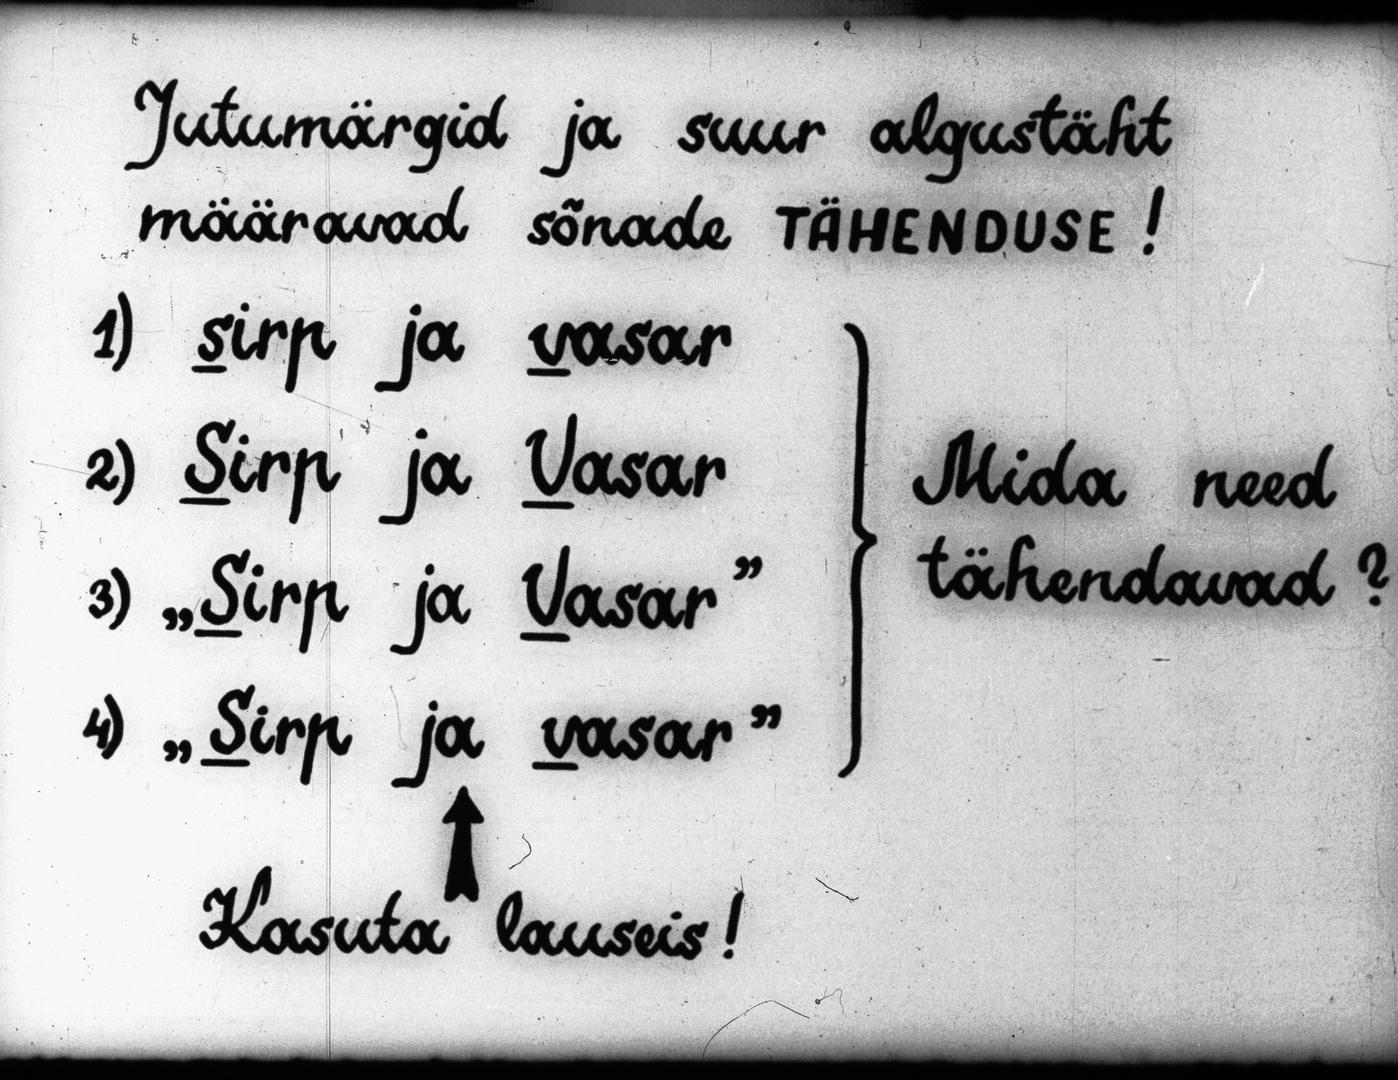 Jutumärgid ja suur algustäht
määravad sõnade TÄHENDUSE!
1) sirp ja vasar
2) Sirp ja Vasar
3) „Sirp ja Vasar”
4) „Sirp ja vasar”
Mida need
tähendavad?
Kasuta lauseis!